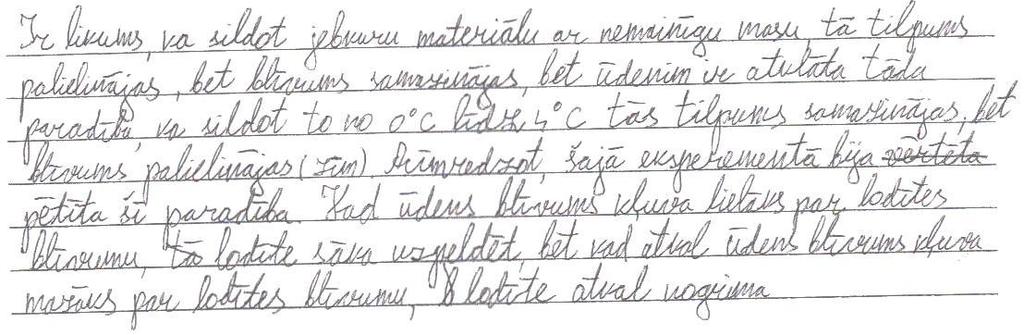 Ir likums, ka sildot jebkuru materiālu ar nemainīgu masu, tā tilpums
palielinājas, bet blīvums samazinājas, bet ūdenim ir atulāta tāda
paradība, ka sildot to no 0°C līdz 4°C tās tilpums samazinājas, bet
blīvums palielinājas (zīm). Acīmredzot, šajā eksperementā bija vērtēta
pētīta šī paradība. Kad ūdens blīvums kļuva lielāks par lodītes
blīvumu, tā lodīte sāka uzpeldēt, bet kad atkal ūdens blīvums kļuva
mazāks par lodītes blīvumu, lodīte atkal nogrima